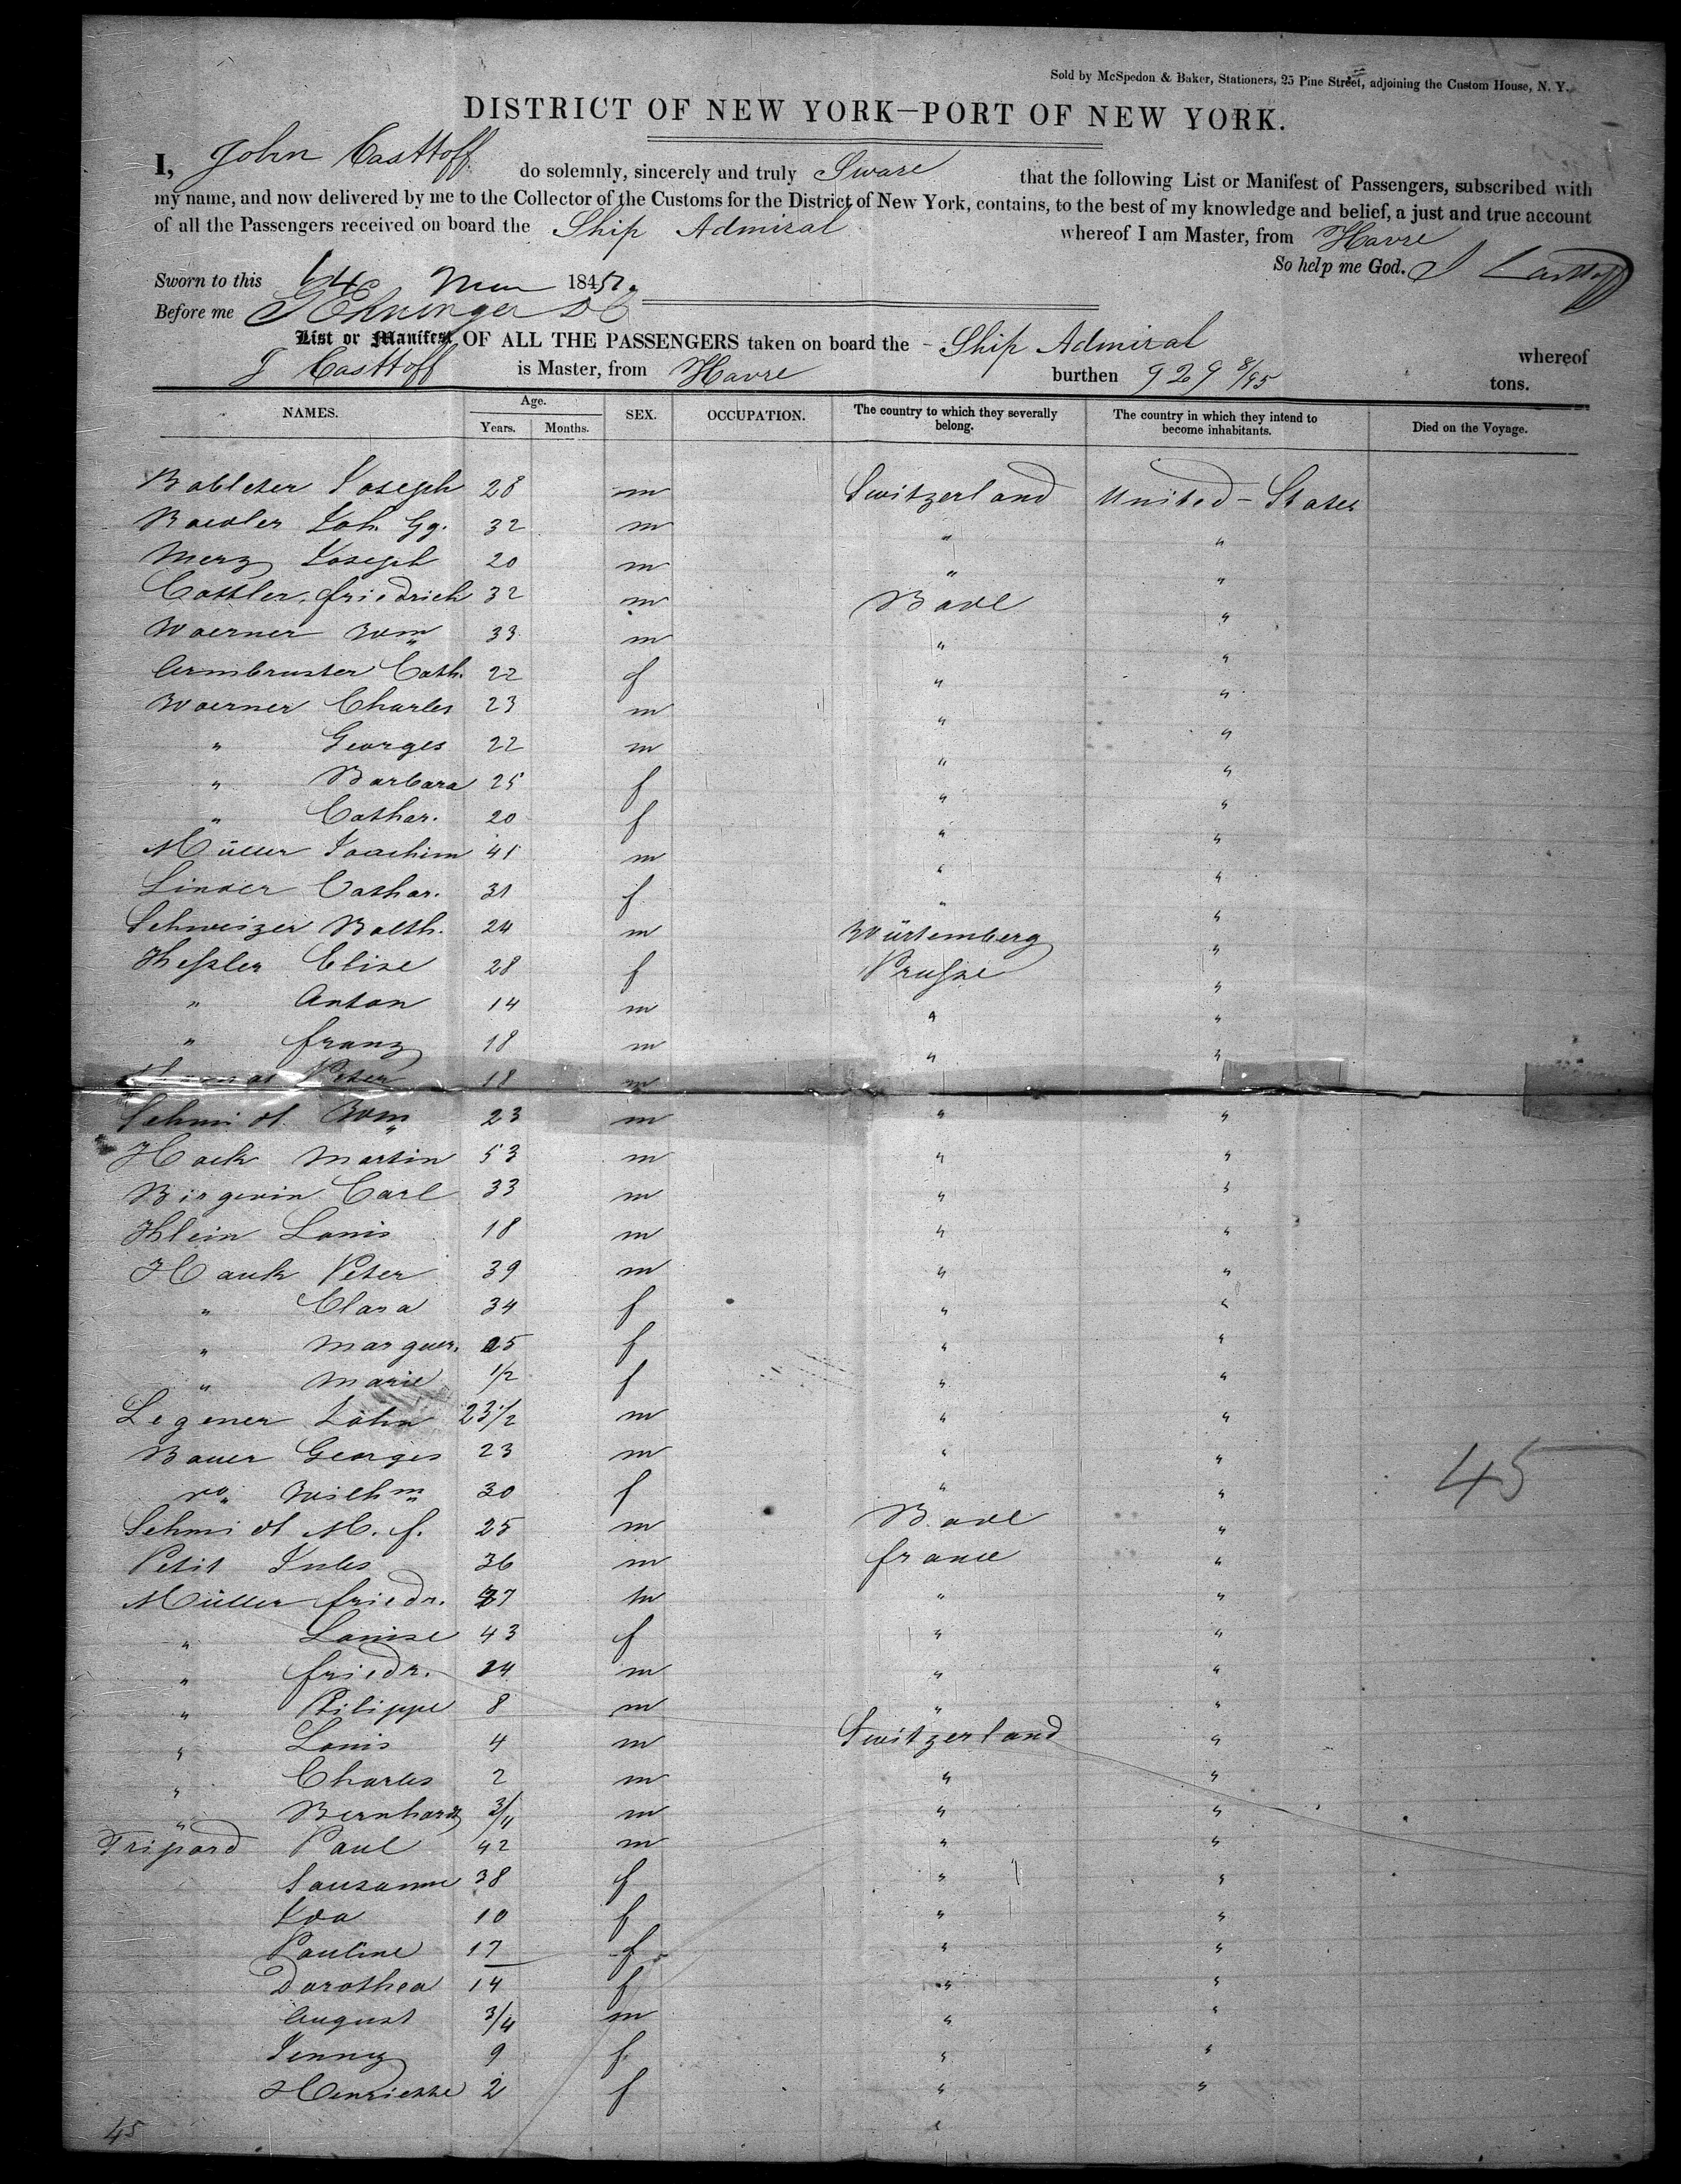 Sold by McSpedon & Baker, Stationers, 25 Pine Street, adjoining the Custom House, N. Y.
DISTRICT OF NEW YORK—PORT OF NEW YORK.
I, John Casttoff do solemnly, sincerely and truly Sware that the following List or Manifest of Passengers, subscribed with
my name, and now delivered by me to the Collector of the Customs for the District of New York, contains, to the best of my knowledge and belief, a just and true account
of all the Passengers received on board the Ship Admiral whereof I am Master, from Havre
So help me God. J Casttoff
Sworn to this 184
Before me
List or Manifest OF ALL THE PASSENGERS taken on board the - Ship Admiral whereof
J Casttoff is Master, from Havre burthen 929 8/95 tons.
NAMES. Age. Years. Months. SEX. OCCUPATION. The country to which they severally belong. The country in which they intend to become inhabitants. Died on the Voyage.
Joseph 28 m Switzerland United-States
Joh. Gg. 32 m " "
Merz Joseph 20 m " "
Cattler friedrich 32 m Bade "
Woerner Wm 33 m " "
Armbruster Cath. 22 f " "
Woerner Charles 23 m " "
" Georges 22 m " "
" Barbara 25 f " "
" Cathar. 20 f " "
Müller Joachim 41 m " "
Linder Cathar. 31 f " "
Schweizer Balth. 24 m Würtemberg "
Keßler Elise 28 f Prußse "
" Anton 14 m " "
" franz 18 m " "
Peter 18 m
Schmidt Wm 23 m " "
Hack Martin 53 m " "
Carl 33 m " "
Klein Louis 18 m " "
Hauk Peter 39 m " "
" Clara 34 f " "
" Marguer. 25 f " "
" Marie 1/2 f " "
Legener John 23 1/2 m " "
Bauer Georges 23 m " "
Wilhm 30 f " "
Schmidt M. f. 25 m Bade "
Petit Jules 36 m france "
Müller friedr. 37 m " "
" Louise 43 f " "
" friedr. 14 m " "
" Philippe 8 m " "
" Louis 4 m Switzerland "
" Charles 2 m " "
" Bernhard 3/4 m " "
Tripard Paul 42 m " "
Sauzanne 38 f " "
Ida 10 f " "
Pauline 17 f " "
Dorothea 14 f " "
August 3/4 m " "
Jenny 9 f " "
Henriette 2 f " "
45
45